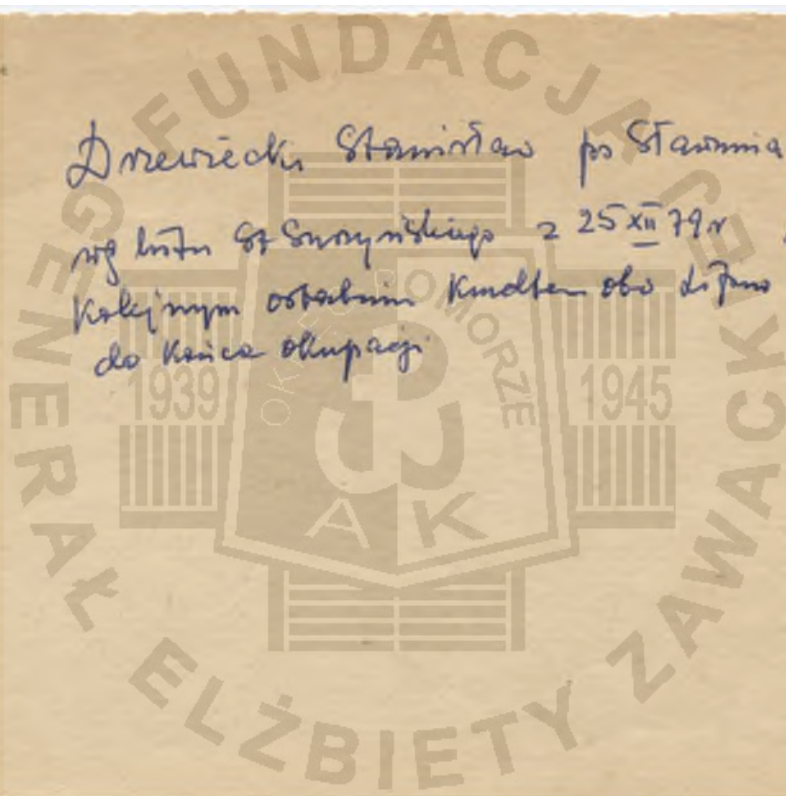 Drzewiecki Stanisław ps Sławunia
wg listu St Suszyńskiego z 25 XII 79 r
Kolejnym ostatnim Kmdtem obw
do końca okupacji
FUNDACJA GENERAŁ ELŻBIETY ZAWACKIEJ
OKRĘG POMORZE
1939
1945
AK